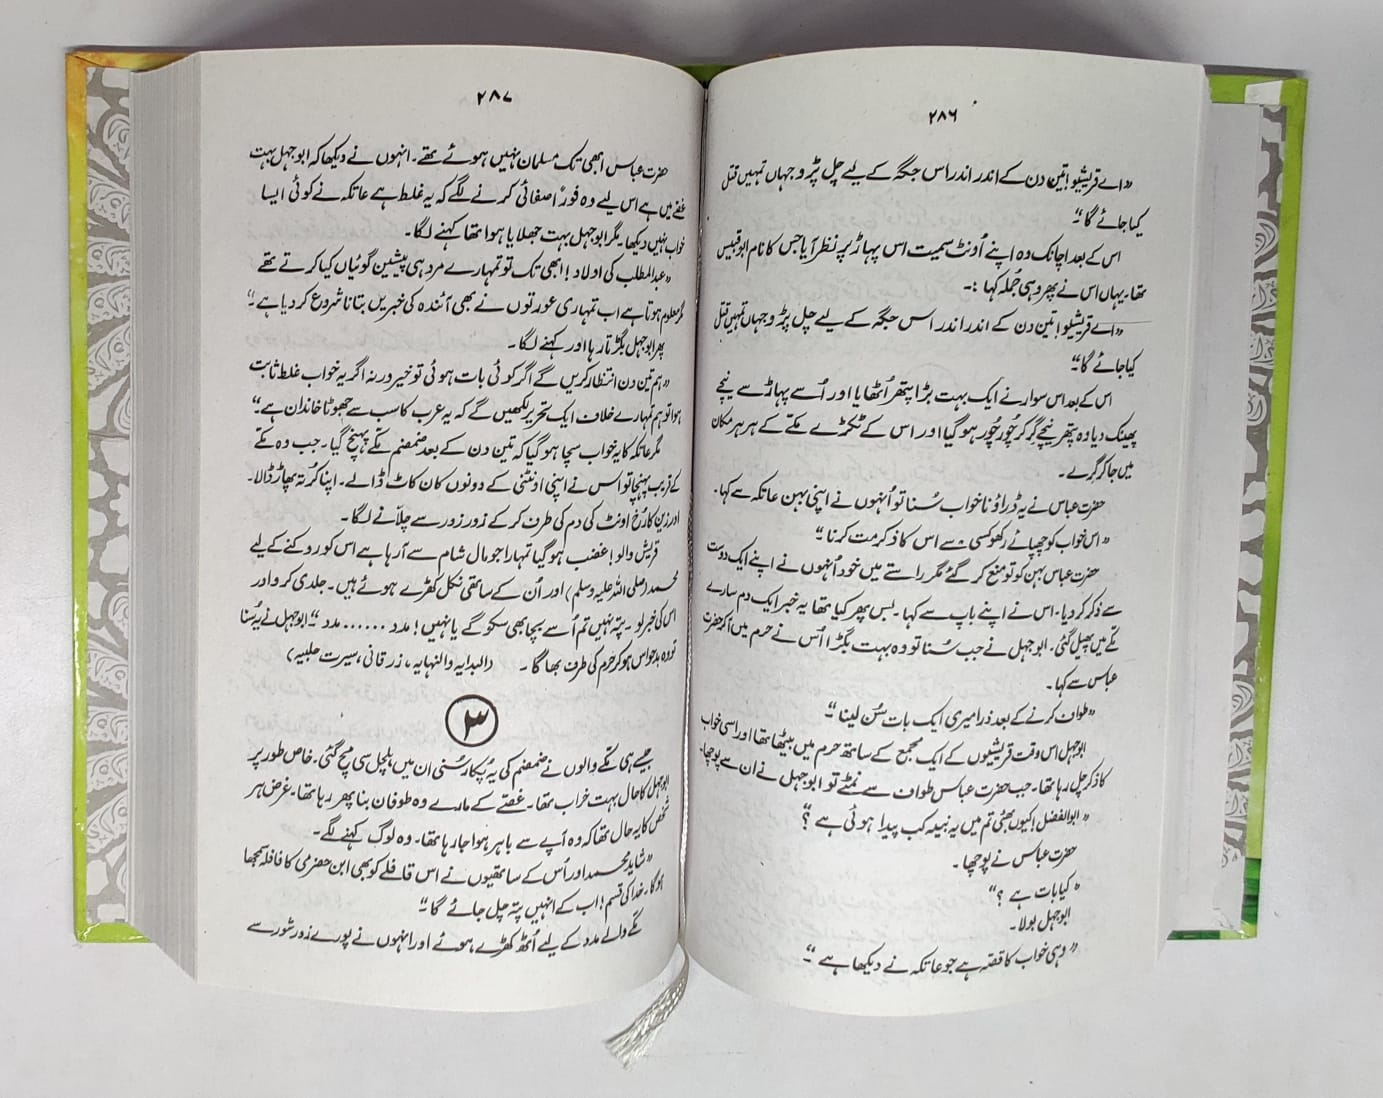 ۲۸۶
"اے قریشیو! تین دن کے اندر اندر اس جگہ کے لیے چل پڑو جہاں تمہیں قتل
کیا جائے گا۔"
اس کے بعد اچانک وہ اپنے اُونٹ سمیت اس پہاڑ پر نظر آیا جس کا نام ابوقبیس
تھا۔ یہاں اس نے پھر وہی جُملہ کہا :۔
"اے قریشیو! تین دن کے اندر اندر اس جگہ کے لیے چل پڑو جہاں تمہیں قتل
کیا جائے گا۔"
اس کے بعد اس سوار نے ایک بہت بڑا پتھر اُٹھایا اور اُسے پہاڑ سے نیچے
پھینک دیا وہ پتھر نیچے گر کر چُور چُور ہو گیا اور اس کے ٹکڑے مکّے کے ہر ہر مکان
میں جا کر گرے۔
حضرت عباس نے یہ ڈراؤنا خواب سُنا تو اُنہوں نے اپنی بہن عاتکہ سے کہا۔
"اس خواب کو چھپائے رکھو کسی سے اس کا ذکر مت کرنا۔"
حضرت عباس بہن کو تو منع کر گئے مگر راستے میں خود اُنہوں نے اپنے ایک دوست
سے ذکر کر دیا۔ اس نے اپنے باپ سے کہا۔ بس پھر کیا تھا یہ خبر ایک دم سارے
مکّے میں پھیل گئی۔ ابوجہل نے جب سُنا تو وہ بہت بگڑا اُس نے حرم میں آ کر حضرت
عباس سے کہا۔
"طواف کرنے کے بعد ذرا میری ایک بات سُن لینا۔"
ابوجہل اس وقت قریشیوں کے ایک مجمع کے ساتھ حرم میں بیٹھا تھا اور اسی خواب
کا ذکر چل رہا تھا۔ جب حضرت عباس طواف سے نمٹے تو ابوجہل نے ان سے پوچھا۔
"ابوالفضل! کیوں بھئی تم میں یہ نبیہ کب پیدا ہوئی ہے ؟"
حضرت عباس نے پوچھا۔
"کیا بات ہے ؟"
ابوجہل بولا۔
"وہی خواب کا قصّہ ہے جو عاتکہ نے دیکھا ہے۔"
۲۸۷
حضرت عباس ابھی تک مسلمان نہیں ہوئے تھے۔ انہوں نے دیکھا کہ ابوجہل بہت
غصّے میں ہے اس لیے وہ فوراً صفائی کرنے لگے کہ یہ غلط ہے عاتکہ نے کوئی ایسا
خواب نہیں دیکھا۔ مگر ابوجہل بہت جھلایا ہوا تھا کہنے لگا۔
"عبدالمطلب کی اولاد! ابھی تک تو تمہارے مرد ہی پیشین گوئیاں کیا کرتے تھے
مگر معلوم ہوتا ہے اب تمہاری عورتوں نے بھی آئندہ کی خبریں بتانا شروع کر دیا ہے۔"
پھر ابوجہل بگڑتا رہا اور کہنے لگا۔
"ہم تین دن انتظار کریں گے اگر کوئی بات ہوئی تو خیر ورنہ اگر یہ خواب غلط ثابت
ہوا تو ہم تمہارے خلاف ایک تحریر لکھیں گے کہ یہ عرب کا سب سے جھوٹا خاندان ہے۔"
مگر عاتکہ کا یہ خواب سچا ہو گیا کہ تین دن کے بعد ضمضم مکّے پہنچ گیا۔ جب وہ مکّے
کے قریب پہنچا تو اس نے اپنی اونٹنی کے دونوں کان کاٹ ڈالے۔ اپنا کُرتہ پھاڑ ڈالا۔
اور زین کا رُخ اونٹ کی دم کی طرف کر کے زور زور سے چلّانے لگا۔
قریش والو! غضب ہو گیا تمہارا جو مال شام سے آ رہا ہے اس کو روکنے کے لیے
محمد (صلی اللہ علیہ وسلم) اور اُن کے ساتھی نکل کھڑے ہوئے ہیں۔ جلدی کرو اور
اس کی خبر لو۔ پتہ نہیں تم اُسے بچا بھی سکو گے یا نہیں! مدد ...... مدد۔" ابوجہل نے یہ سُنا
تو وہ بدحواس ہو کر حرم کی طرف بھاگا۔ (البدایہ والنہایہ، زرقانی، سیرت حلبیہ)
۳
جیسے ہی مکّے والوں نے ضمضم کی یہ پُکار سُنی ان میں ہلچل سی مچ گئی۔ خاص طور پر
ابوجہل کا حال بہت خراب تھا۔ غصّے کے مارے وہ طوفان بنا پھر رہا تھا۔ غرض ہر
شخص کا یہ حال تھا کہ وہ آپے سے باہر ہوا جا رہا تھا۔ وہ لوگ کہنے لگے۔
"شاید محمد اور اُس کے ساتھیوں نے اس قافلے کو بھی ابن حضرمی کا قافلہ سمجھا
ہو گا۔ خدا کی قسم! اب کے انہیں پتہ چل جائے گا۔"
مکّے والے مدد کے لیے اُٹھ کھڑے ہوئے اور انہوں نے پورے زور شور سے